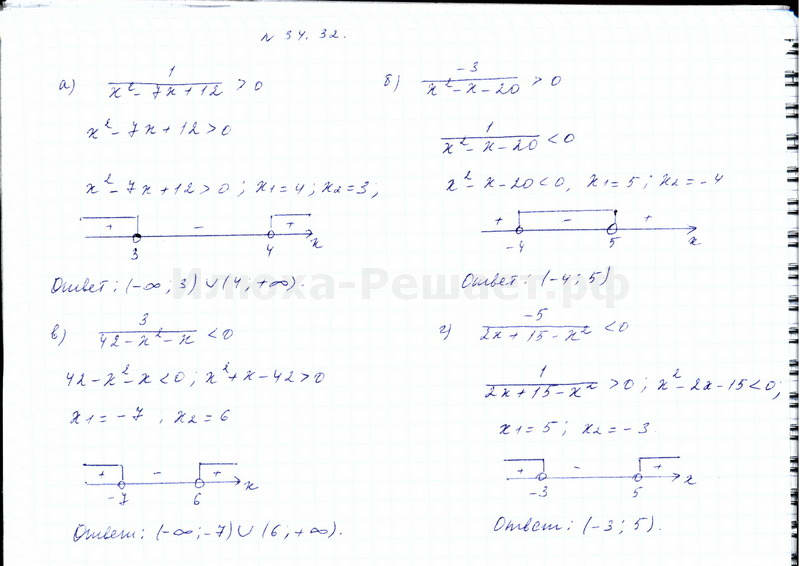 N 34. 32.
а) 1/(x² - 7x + 12) > 0
x² - 7x + 12 > 0
x² - 7x + 12 > 0 ; x1 = 4 ; x2 = 3,
+ - +
3 4 x
Ответ: (-∞; 3) ∪ (4, +∞).
б) -3/(x² - x - 20) > 0
1/(x² - x - 20) < 0
x² - x - 20 < 0, x1 = 5 ; x2 = -4
+ - +
-4 5 x
Ответ: (-4; 5)
Илюха-Решает.рф
в) 3/(42 - x² - x) < 0
42 - x² - x < 0 ; x² + x - 42 > 0
x1 = -7 , x2 = 6
+ - +
-7 6 x
Ответ: (-∞; -7) ∪ (6, +∞).
г) -5/(2x + 15 - x²) < 0
1/(2x + 15 - x²) > 0 ; x² - 2x - 15 < 0;
x1 = 5 ; x2 = -3.
+ - +
-3 5 x
Ответ: (-3; 5).